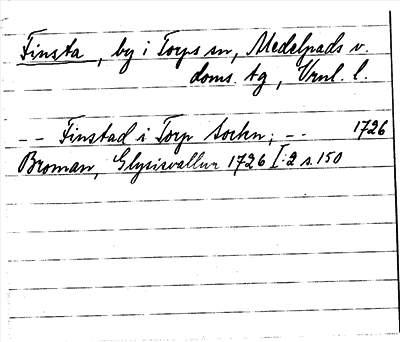 Finsta, by i Torps sn, Medelpads v.
doms. tg, Vrnl. l.
-- Finstad i Torp Sochn; -- 1726
Broman, Glysisvallur 1726 I:2 s. 150